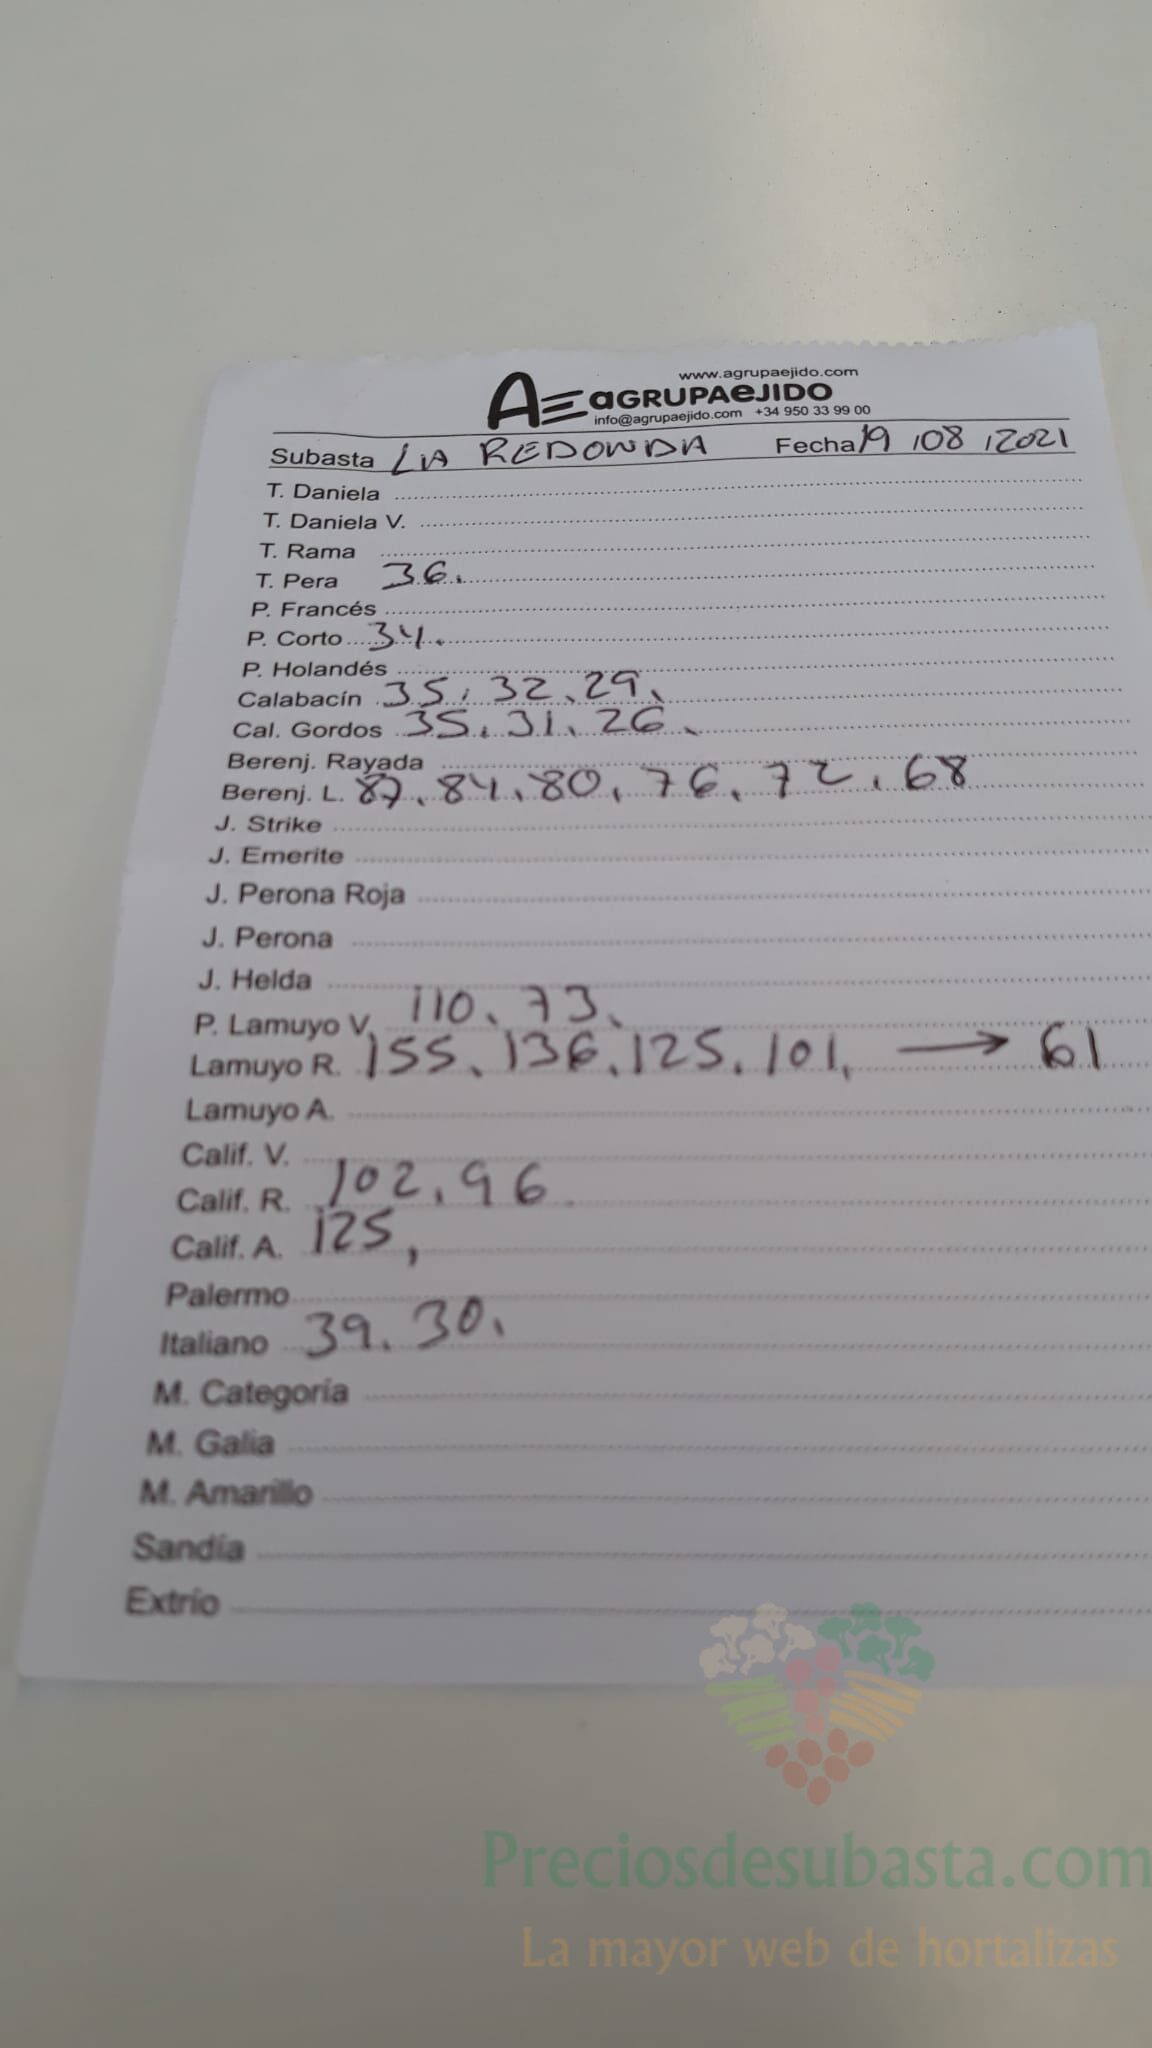 www.agrupaejido.com
AE aGRUPAeJIDO
info@agrupaejido.com +34 950 33 99 00
Subasta LA REDONDA Fecha 19/08/2021
T. Daniela
T. Daniela V.
T. Rama
T. Pera 36.
P. Francés
P. Corto 34.
P. Holandés
Calabacín 35, 32, 29,
Cal. Gordos 35, 31, 26,
Berenj. Rayada
Berenj. L. 87, 84, 80, 76, 72, 68
J. Strike
J. Emerite
J. Perona Roja
J. Perona
J. Helda
P. Lamuyo V. 110, 73,
Lamuyo R. 155, 136, 125, 101, → 61
Lamuyo A.
Calif. V.
Calif. R. 102, 96.
Calif. A. 125,
Palermo
Italiano 39, 30,
M. Categoría
M. Galia
M. Amarillo
Sandía
Extrío
Preciosdesubasta.com
La mayor web de hortalizas